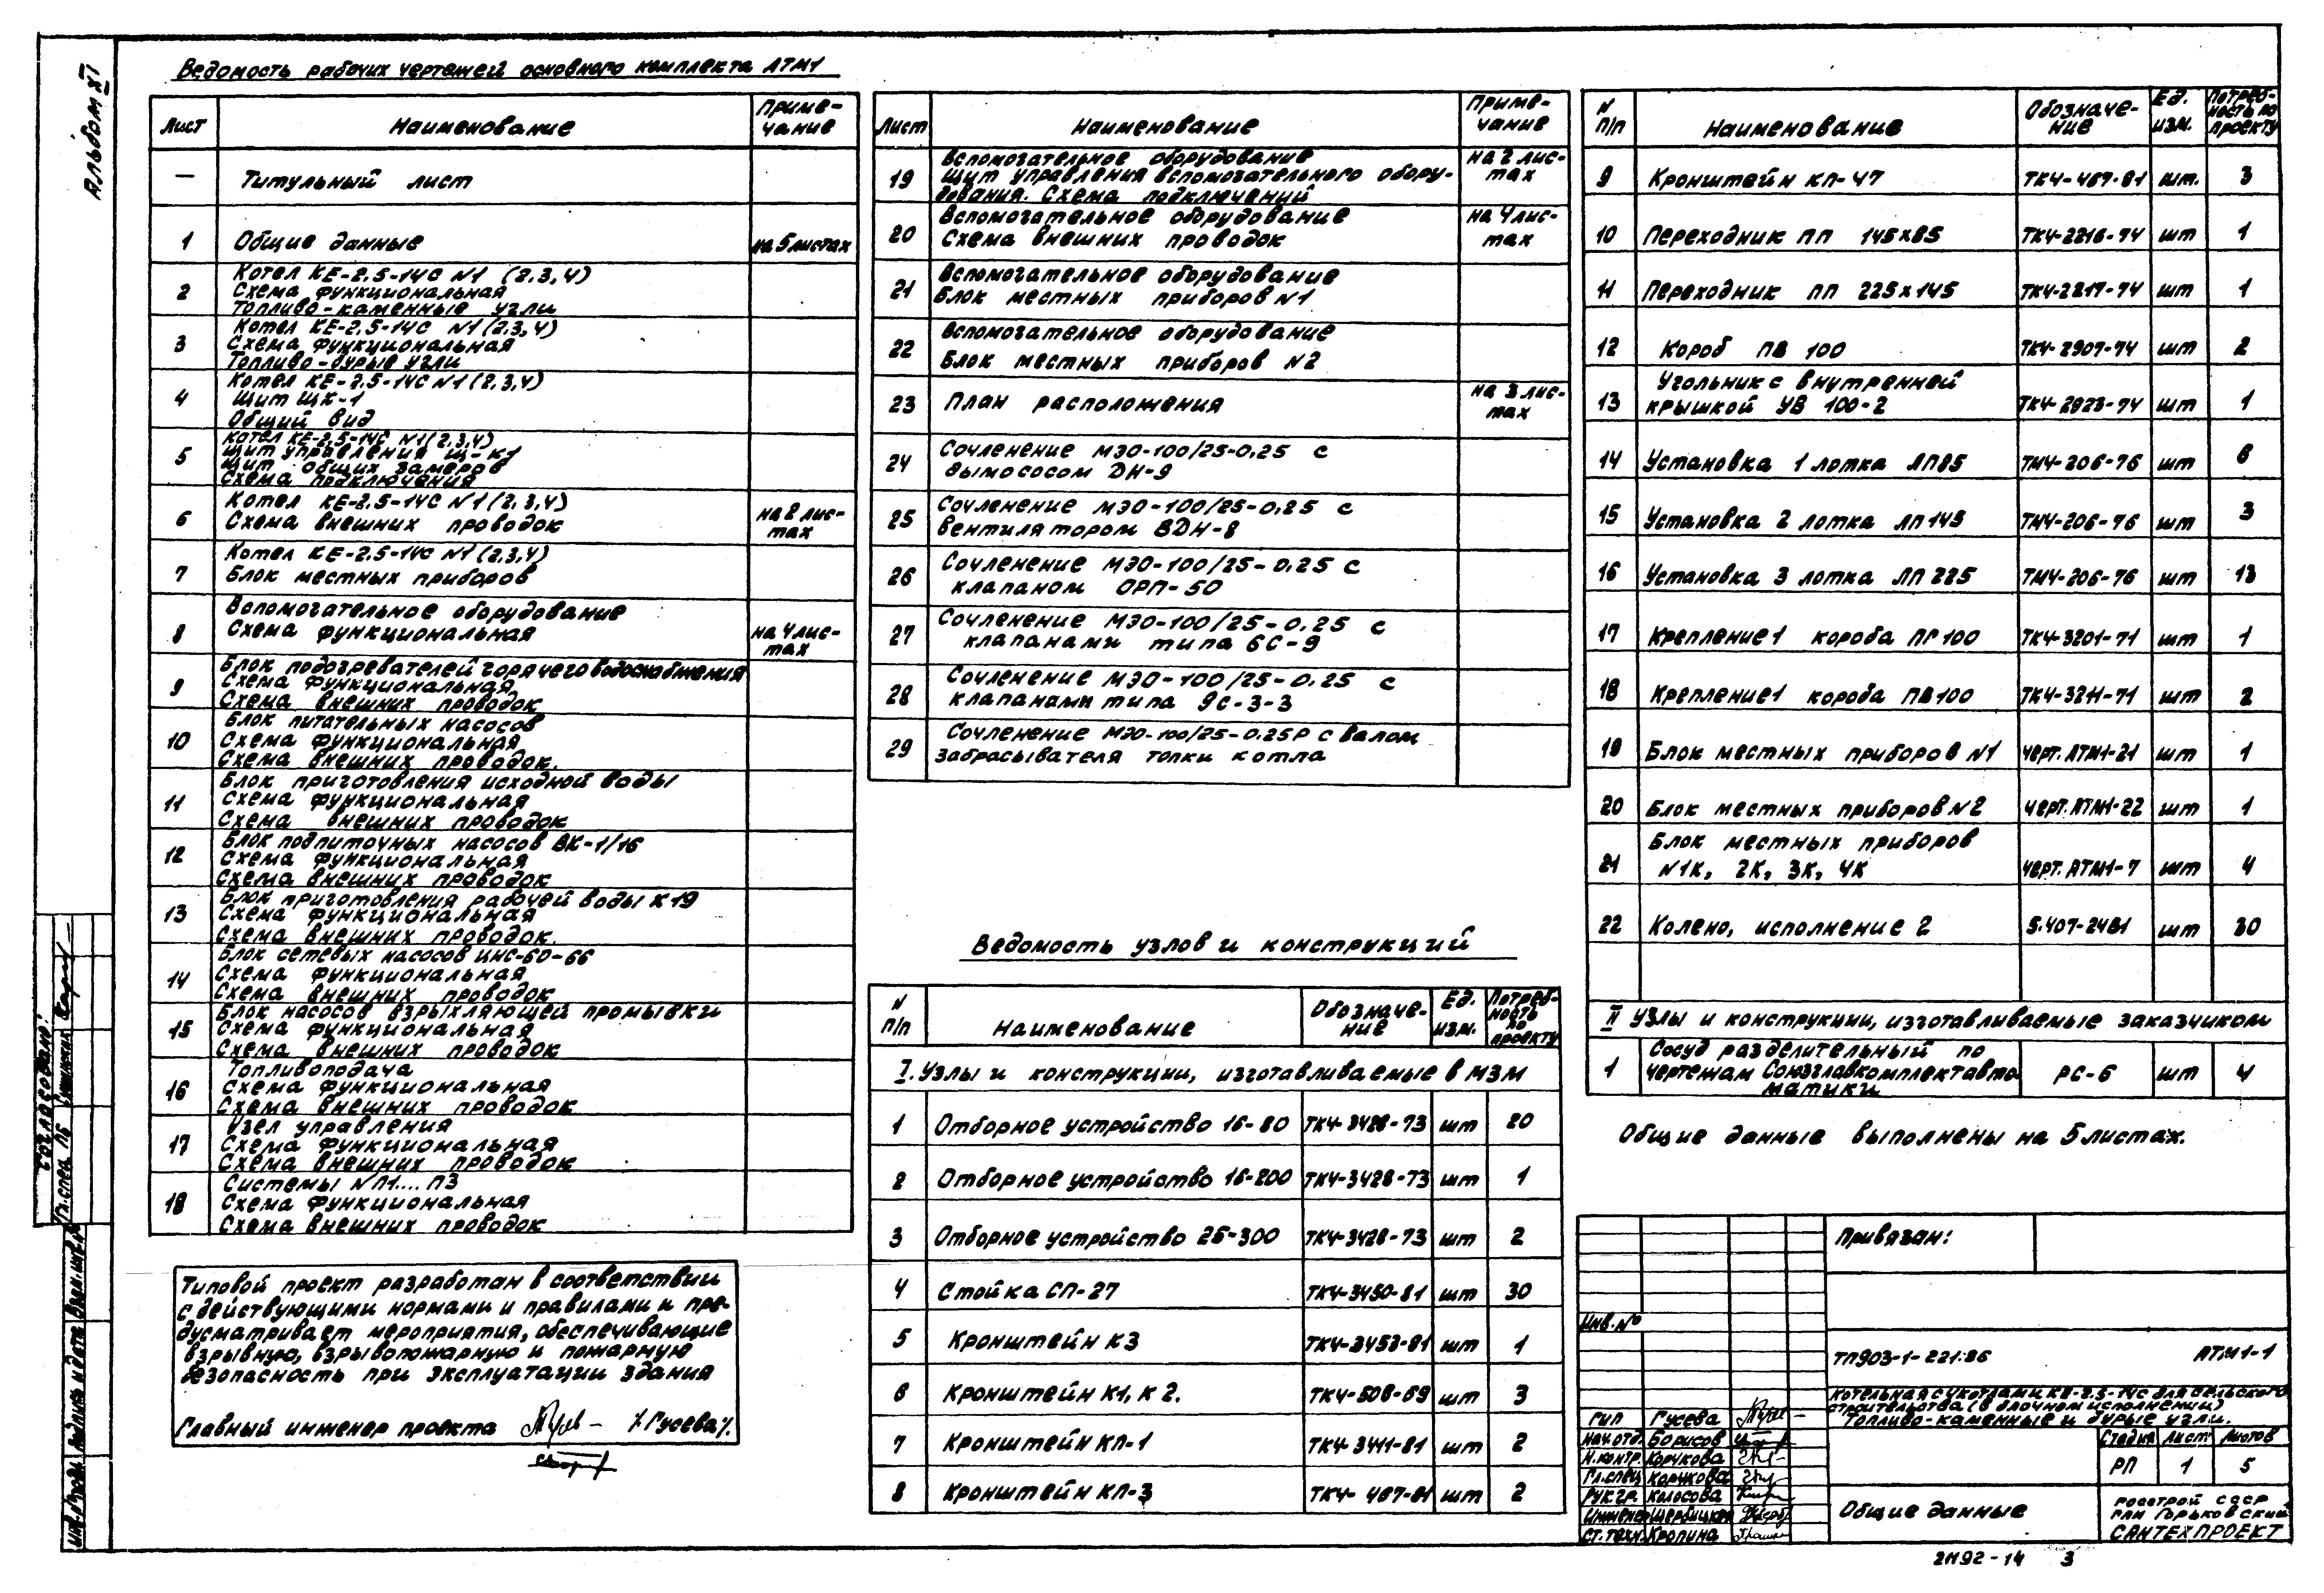 Альбом XI
Ведомость рабочих чертежей основного комплекта АТМ1
Лист Наименование Приме-
чание
— Титульный лист
1 Общие данные на 5 листах
Котел КЕ-2.5-14С N1 (2,3,4)
2 Схема функциональная
Топливо-каменные угли
Котел КЕ-2.5-14С N1 (2,3,4)
3 Схема функциональная
Топливо-бурые угли
Котел КЕ-2.5-14С N1 (2,3,4)
4 Щит ЩК-1
Общий вид
Котел КЕ-2.5-14С N1 (2,3,4)
5 Щит управления Щ-К1
Щит общих замеров
Схема подключения
Котел КЕ-2.5-14С N1 (2,3,4)
6 Схема внешних проводок на 2 лис-
тах
Котел КЕ-2.5-14С N1 (2,3,4)
7 Блок местных приборов
Вспомогательное оборудование
8 Схема функциональная на 4 лис-
тах
Блок подогревателей горячего водоснабжения
9 Схема функциональная
Схема внешних проводок
Блок питательных насосов
10 Схема функциональная
Схема внешних проводок.
Блок приготовления исходной воды
11 Схема функциональная
Схема внешних проводок
Блок подпиточных насосов ВК-1/16
12 Схема функциональная
Схема внешних проводок
Блок приготовления рабочей воды К19
13 Схема функциональная
Схема внешних проводок.
Блок сетевых насосов ЦНС-60-66
14 Схема функциональная
Схема внешних проводок
Блок насосов взрыхляющей промывки
15 Схема функциональная
Схема внешних проводок
Топливоподача
16 Схема функциональная
Схема внешних проводок
Узел управления
17 Схема функциональная
Схема внешних проводок
Системы NП1....П3
18 Схема функциональная
Схема внешних проводок
Типовой проект разработан в соответствии
с действующими нормами и правилами и пре-
дусматривает мероприятия, обеспечивающие
взрывную, взрывопожарную и пожарную
безопасность при эксплуатации здания
Главный инженер проекта /Гусева/.
Лист Наименование Приме-
чание
Вспомогательное оборудование на 2 лис-
19 Щит управления вспомогательного обору- тах
дования. Схема подключений
Вспомогательное оборудование на 4 лис-
20 Схема внешних проводок тах
Вспомогательное оборудование
21 Блок местных приборов N1
Вспомогательное оборудование
22 Блок местных приборов N2
23 План расположения на 3 лис-
тах
Сочленение МЭО-100/25-0,25 с
24 дымососом ДН-9
Сочленение МЭО-100/25-0,25 с
25 вентилятором ВДН-8
Сочленение МЭО-100/25-0.25 с
26 клапаном ОРП-50
Сочленение МЭО-100/25-0.25 с
27 клапанами типа 6С-9
Сочленение МЭО-100/25-0.25 с
28 клапанами типа 9с-3-3
Сочленение МЭО-100/25-0.25Р с валом
29 забрасывателя топки котла
Ведомость узлов и конструкций
N
п/п Наименование Обозначе-
ние Ед.
изм. Потреб-
ность
по
проекту
I. Узлы и конструкции, изготавливаемые в МЗМ
1 Отборное устройство 16-80 ТК4-3428-73 шт 20
2 Отборное устройство 16-200 ТК4-3428-73 шт 1
3 Отборное устройство 25-300 ТК4-3428-73 шт 2
4 Стойка СП-27 ТК4-3450-81 шт 30
5 Кронштейн К3 ТК4-3453-81 шт 1
6 Кронштейн К1, К2. ТК4-508-69 шт 3
7 Кронштейн КП-1 ТК4-3411-81 шт 2
8 Кронштейн КП-3 ТК4-467-81 шт 2
N
п/п Наименование Обозначе-
ние Ед.
изм. Потреб-
ность по
проекту
9 Кронштейн КП-47 ТК4-467-81 шт. 3
10 Переходник ПП 145х85 ТК4-2216-74 шт 1
11 Переходник ПП 225х145 ТК4-2217-74 шт 1
12 Короб ПВ 100 ТК4-2907-74 шт 2
Угольник с внутренней
13 крышкой УВ 100-2 ТК4-2923-74 шт 1
14 Установка 1 лотка ЛП85 ТМ4-206-76 шт 6
15 Установка 2 лотка ЛП145 ТМ4-206-76 шт 3
16 Установка 3 лотка ЛП 225 ТМ4-206-76 шт 13
17 Крепление 1 короба ПГ100 ТК4-3201-71 шт 1
18 Крепление 1 короба ПВ100 ТК4-3211-71 шт 2
19 Блок местных приборов N1 черт. АТМ1-21 шт 1
20 Блок местных приборов N2 черт. АТМ1-22 шт 1
Блок местных приборов
21 N1К, 2К, 3К, 4К черт. АТМ1-7 шт 4
22 Колено, исполнение 2 5.407-24В1 шт 30
II Узлы и конструкции, изготавливаемые заказчиком
Сосуд разделительный по
1 чертежам Союзглавкомплектавто- РС-6 шт 4
матики
Общие данные выполнены на 5 листах.
Привязан:
Инв. №
ТП903-1-221.86 АТМ1-1
Котельная с 4 котлами КЕ-2.5-14С для сельского
строительства (в блочном исполнении)
Топливо-каменные и бурые угли.
ГИП Гусева
Нач.отд. Борисов
Н.контр. Корчкова
Гл.спец. Корчкова
Рук.гр. Колосова
Инженер Щербицкая
Ст.техн. Кропина
Стадия Лист Листов
РП 1 5
Общие данные
Росстрой СССР
ГПИ Горьковский
САНТЕХПРОЕКТ
Согласовано:
Гл.спец. ПБ
Инв.№ подл. Подпись и дата Взам.инв.№
21192-14 3